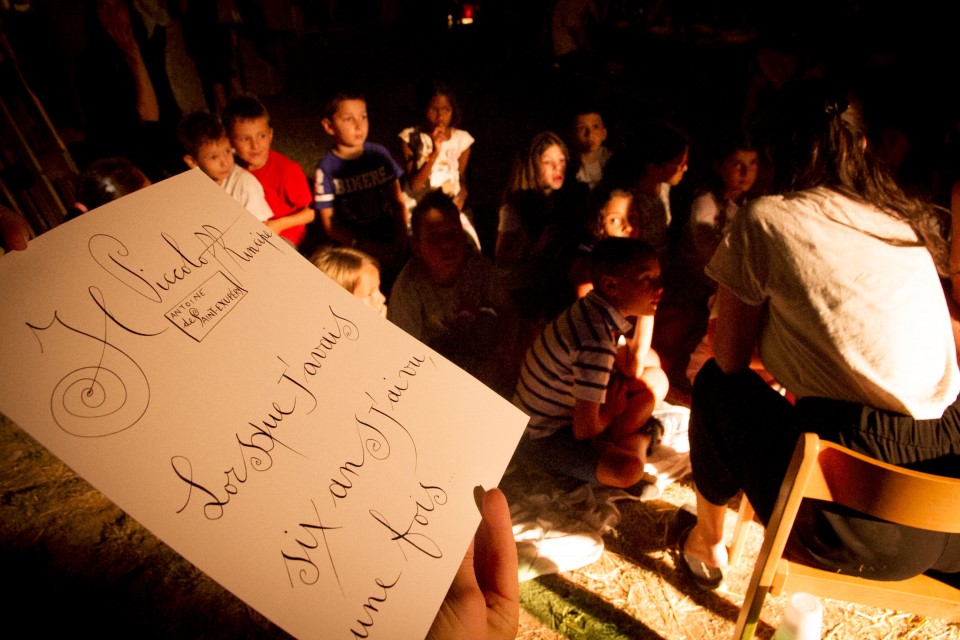 Il Piccolo Principe
ANTOINE
de SAINT-EXUPÉRY
Lorsque j'avais
six ans j'ai vu,
une fois...
BIKERS